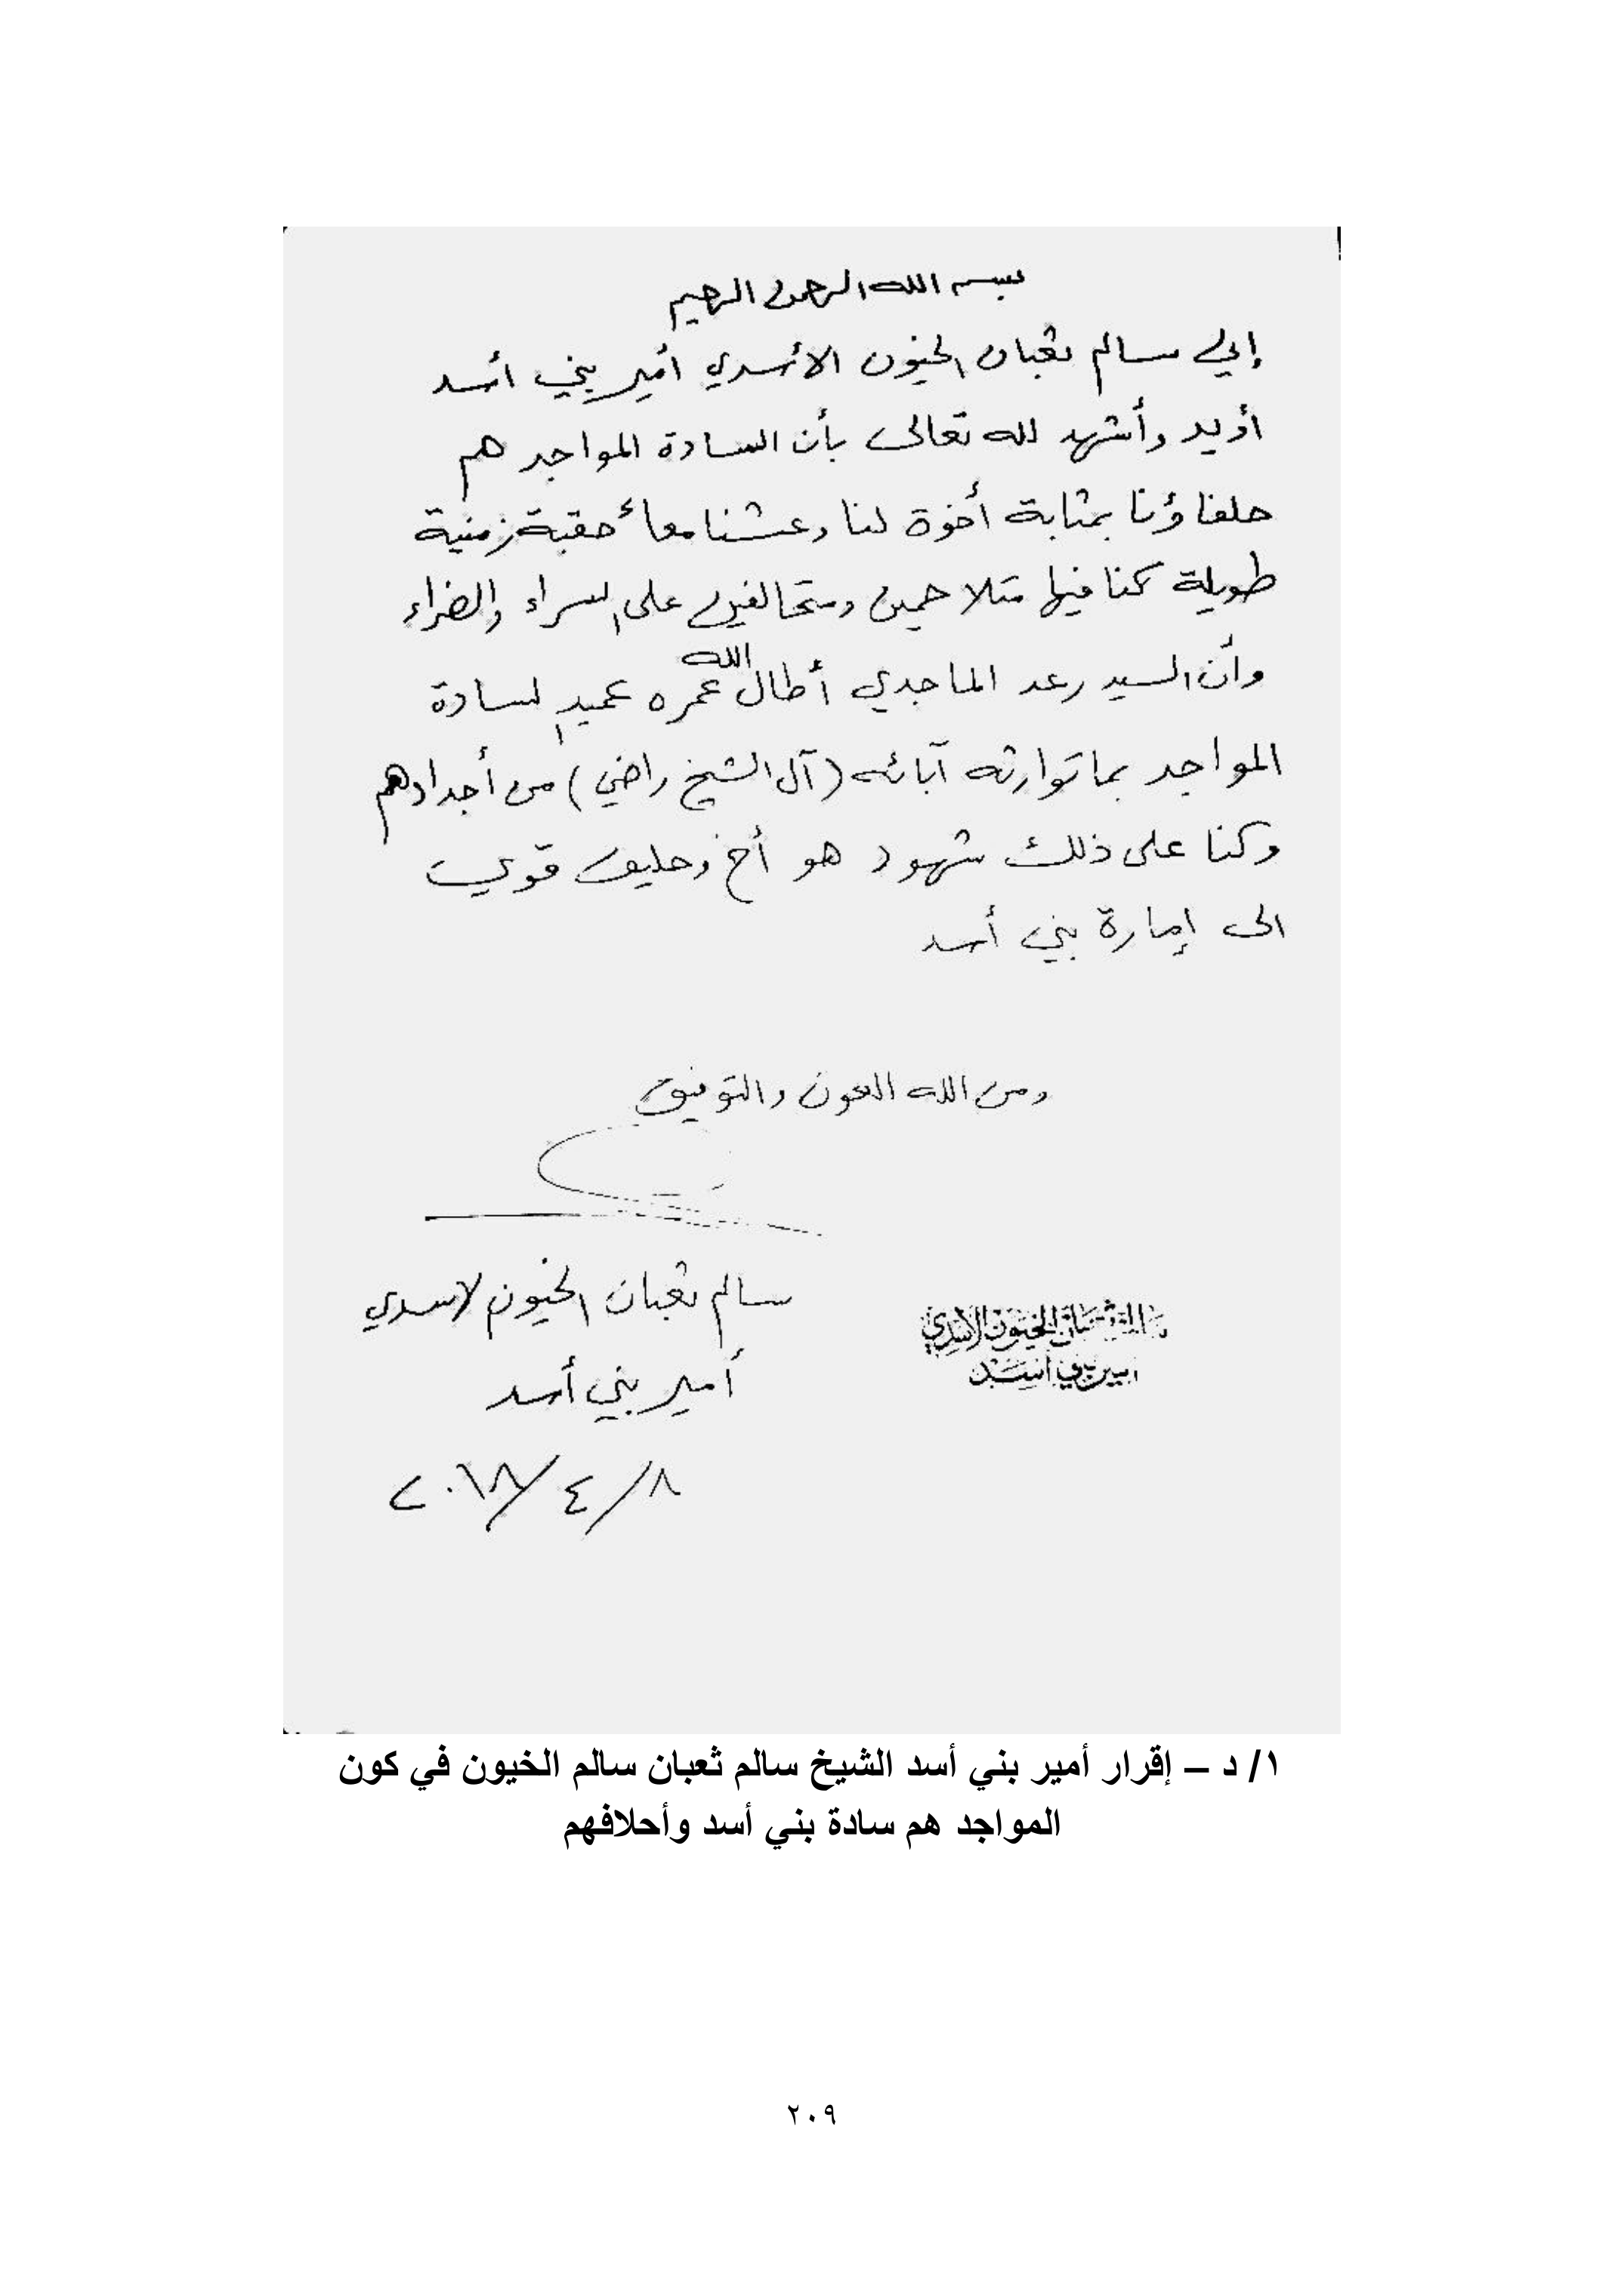 بسم الله الرحمن الرحيم
إني سالم ثعبان الخيون الأسدي أمير بني أسد
أؤيد وأشهد لله تعالى بأن السادة المواجد هم
حلفاؤنا بمثابة أخوة لنا وعشنا معاً حقبة زمنية
طويلة كنا فيها متلاحمين ومتحالفين على السراء والضراء
وأن السيد رعد الماجدي أطال الله عمره عميد السادة
المواجد بما توارثه آبائه (آل الشيخ راضي) من أجدادهم
وكنا على ذلك شهود هو أخ وحليف قوي
الى إمارة بني أسد
ومن الله العون والتوفيق
سالم ثعبان الخيون الاسدي
أمير بني أسد
٨/٤/٢٠١٨
الخيون الأسدي
أمير بني أسد
١/ د – إقرار أمير بني أسد الشيخ سالم ثعبان سالم الخيون في كون
المواجد هم سادة بني أسد وأحلافهم
٢٠٩